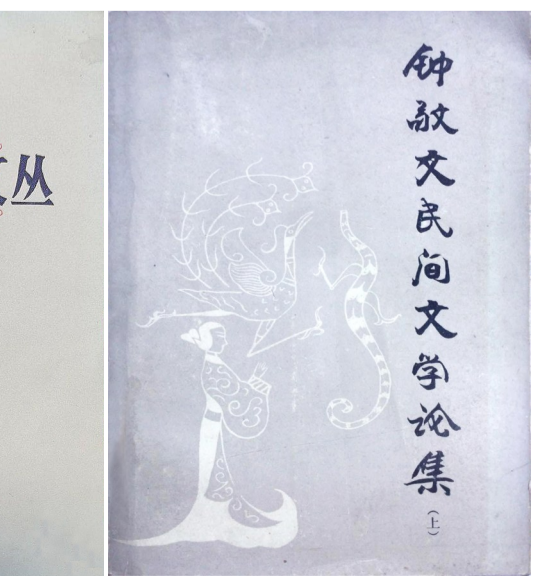 丛
钟敬文民间文学论集
（上）